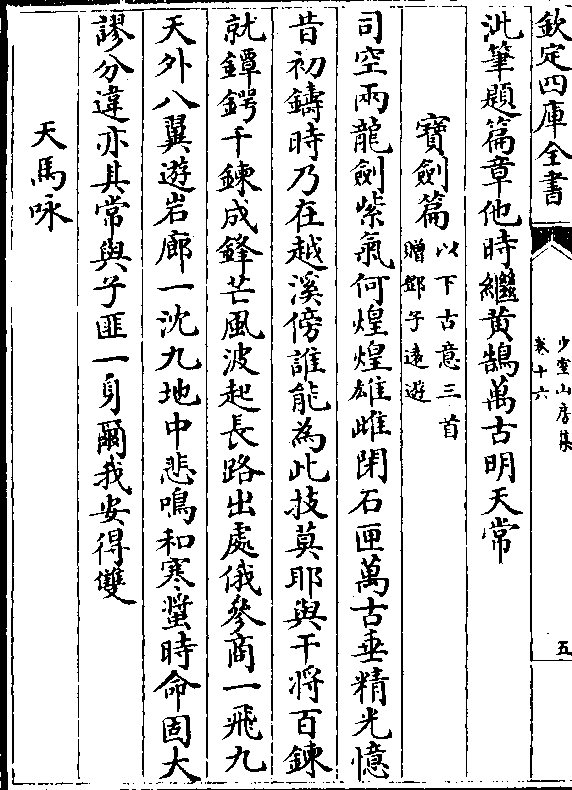 欽定四庫全書
少室山房集
卷十六
五
泚筆題篇章他時繼黄鵠萬古明天常
寶劍篇以下古意三首
贈鄧子遠遊
司空兩龍劍紫氣何煌煌雄雌閉石匣萬古垂精光憶
昔初鑄時乃在越溪傍誰能為此技莫耶與干將百鍊
就鐔鍔千鍊成鋒芒風波起長路出處俄參商一飛九
天外八翼遊岩廊一沈九地中悲鳴和寒螿時命固大
謬分違亦其常與子匪一身爾我安得雙
天馬咏